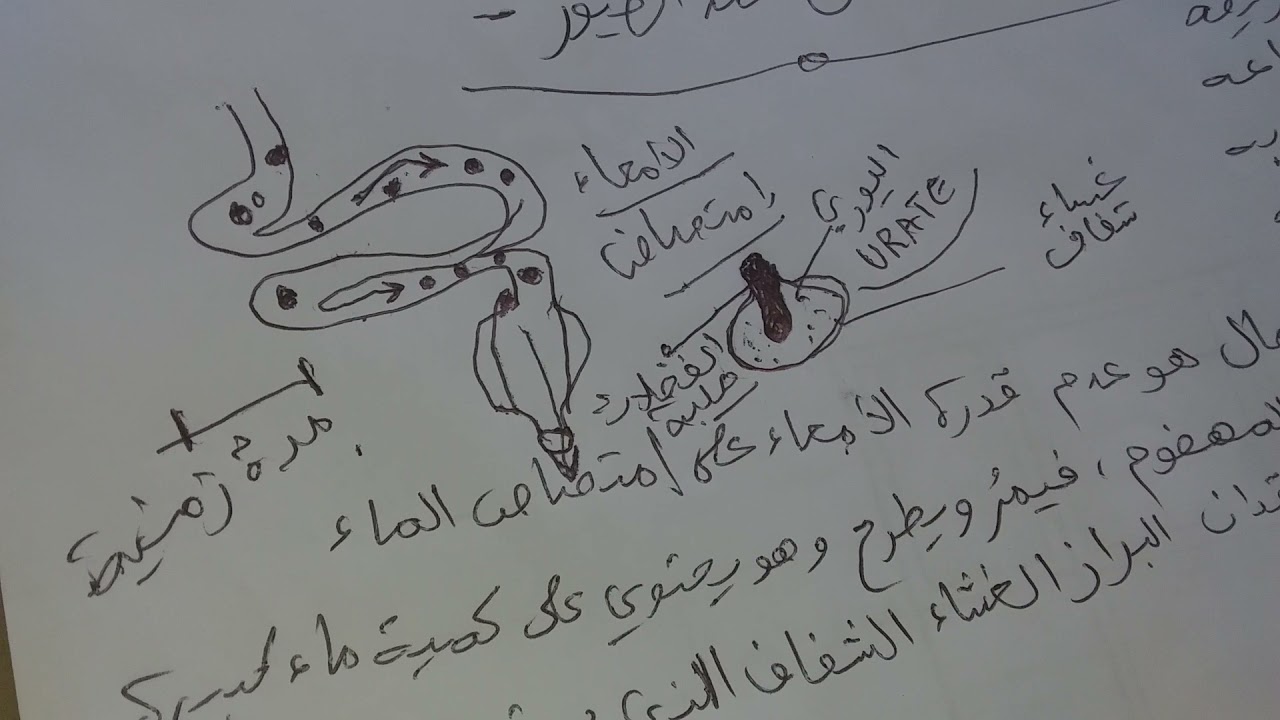 الطيور -
الأمعاء
امتصاص
اليوري
URATE
غشاء
شفاف
الفضلات
صلبة
مدة زمنية
هو عدم قدرة الأمعاء على امتصاص الماء
المهضوم، فيمر ويطرح وهو يحتوي على كمية ماء كبيرة
البراز الغشاء الشفاف الذي